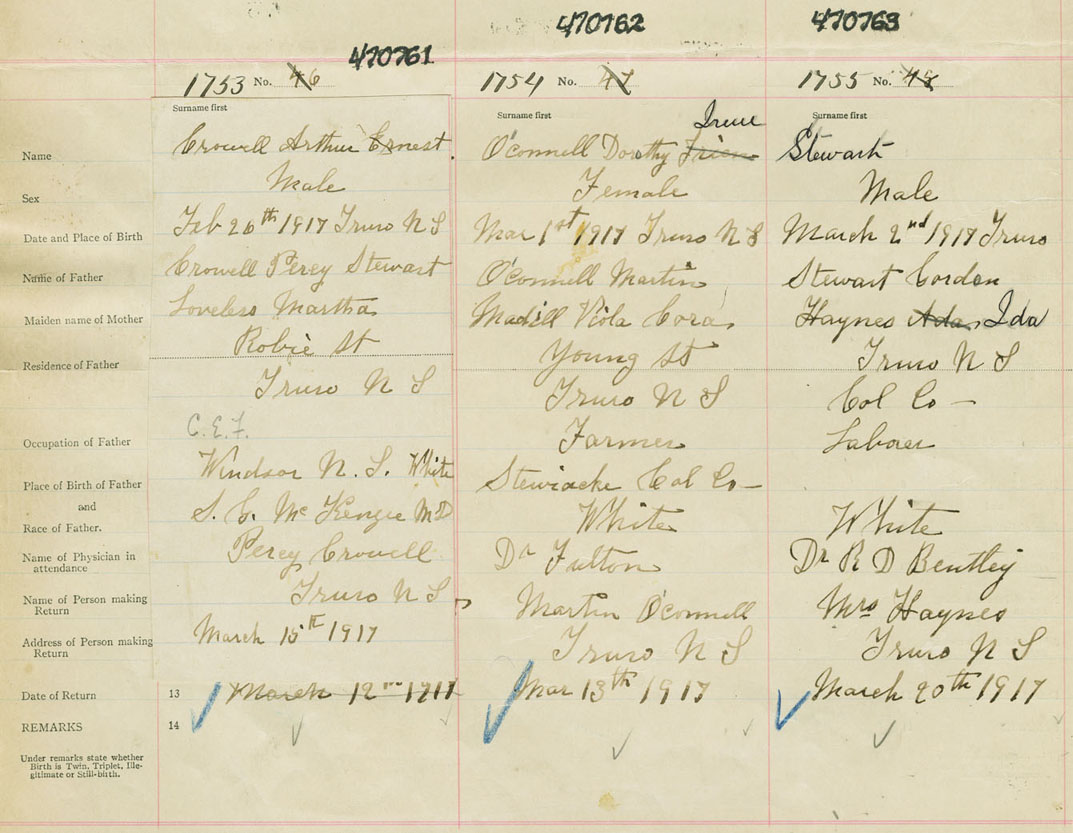 470761
470762
470763
1753 No. 46
1754 No. 47
1755 No. 48
Surname first
Surname first
Surname first
Irene
Name
Crowell Arthur Ernest.
O'connell Dorothy
Stewart
Sex
Male
Female
Male
Date and Place of Birth
Feb 26th 1917 Truro N S
Mar 1st 1917 Truro N S
March 2nd 1917 Truro
Name of Father
Crowell Percy Stewart
O'connell Martin
Stewart Gordon
Maiden name of Mother
Loveless Martha
Madill Viola Cora
Haynes Ada Ida
Residence of Father
Robie St
Young St
Truro N S
Truro N S
Truro N S
Col Co —
Occupation of Father
C.E.F.
Farmer
Laborer
Place of Birth of Father
and
Race of Father.
Windsor N. S. White
Stewiacke Col Co —
White
White
Name of Physician in
attendance
S. G. Mc Kenzie M D
Dr Fulton
Dr R D Bentley
Name of Person making
Return
Percy Crowell
Martin O'connell
Mrs Haynes
Address of Person making
Return
Truro N S
Truro N S
Truro N S
March 15th 1917
Date of Return
13 March 12th 1917
Mar 13th 1917
March 20th 1917
REMARKS
14
Under remarks state whether
Birth is Twin, Triplet, Ille-
gitimate or Still-birth.